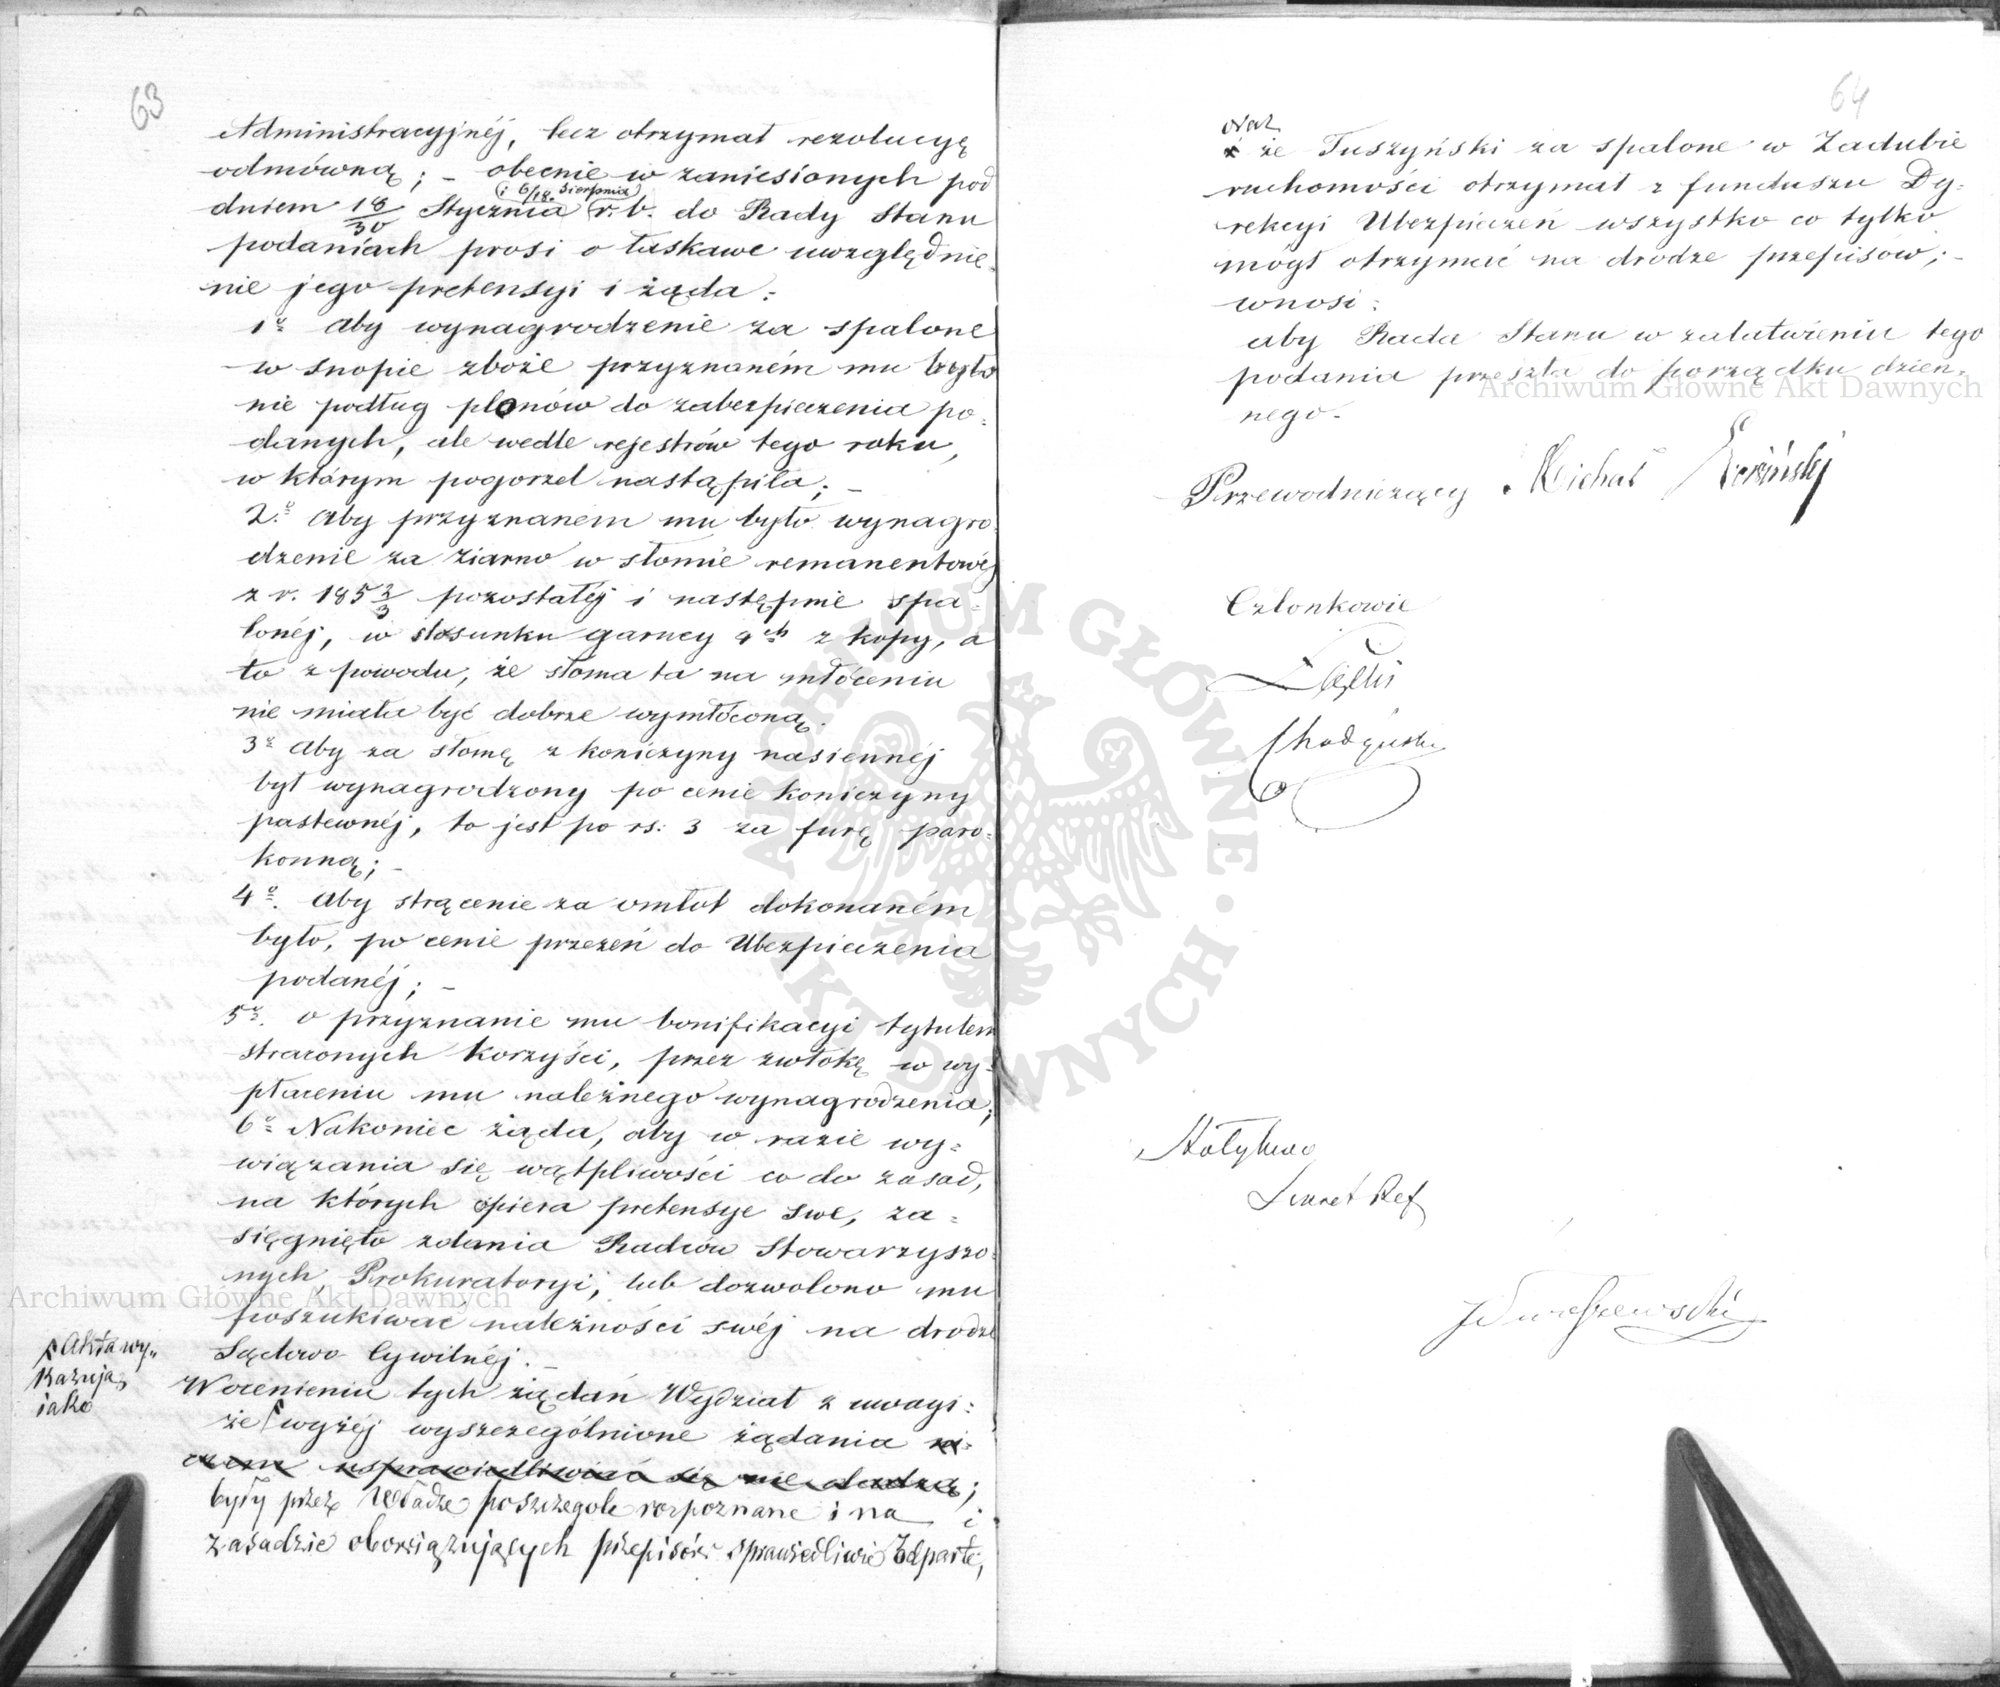 63
Administracyjnéj, lecz otrzymał rezolucyę
odmówną; – obecnie w zaniesionych pod
(i 6/18. Sierpnia)
dniem 18/30 Stycznia r. b. do Rady Stanu
podaniach prosi o łaskawe uwzględnie-
nie jego pretensyi i żąda:
1o aby wynagrodzenie za spalone
w snopie zboże przyznaném mu było
nie podług plonów do zabezpieczenia po-
danych, ale wedle rejestrów tego roku,
w którym pogorzel nastąpiła; –
2.o aby przyznanem mu było wynagro-
dzenie za ziarno w słomie remanentowéj
z r. 1852/3 pozostałéj i następnie spa-
lonéj, w stosunku garncy 4ch z kopy, a
to z powodu, że słoma ta na młóceniu
nie miała być dobrze wymłóconą.
3o aby za słomę z koniczyny nasiennéj
był wynagrodzony po cenie koniczyny
pastewnéj, to jest po rs: 3 za furę paro-
konną; –
4o. aby strącenie za omłot dokonaném
było, po cenie przezeń do Ubezpieczenia
podanéj; –
5o. o przyznanie mu bonifikacyi tytułem
straconych korzyści, przez zwłokę w wy-
płaceniu mu należnego wynagrodzenia;
6o Nakoniec żąda, aby w razie wy-
wiązania się wątpliwości co do zasad,
na których opiera pretensye swe, za-
sięgnięto zdania Radców Stowarzyszo-
nych, Prokuratoryi, lub dozwolono mu
poszukiwać należności swéj na drodze
Sądowo Cywilnéj. –
Akta wy-
kazują,
iako
W ocenieniu tych żądań Wydział z uwagi:
że wyżéj wyszczególnione żądania ni-
czem usprawiedliwiać się nie dadzą;
były przez Władze poszczegole rozpoznane i na
zasadzie obowiązujących przepisów sprawiedliwie odparte,
64
oraz
że Tuszyński za spalone w Zadubie
ruchomości otrzymał z funduszu Dy-
rekcyi Ubezpieczeń wszystko co tylko
mógł otrzymać na drodze przepisów; –
wnosi:
aby Rada Stanu w załatwieniu tego
podania przeszła do porządku dzien-
nego. –
Przewodniczący Michał
Członkowie
Sekret Ref
Archiwum Główne Akt Dawnych
Archiwum Główne Akt Dawnych
ARCHIWUM GŁÓWNE AKT DAWNYCH